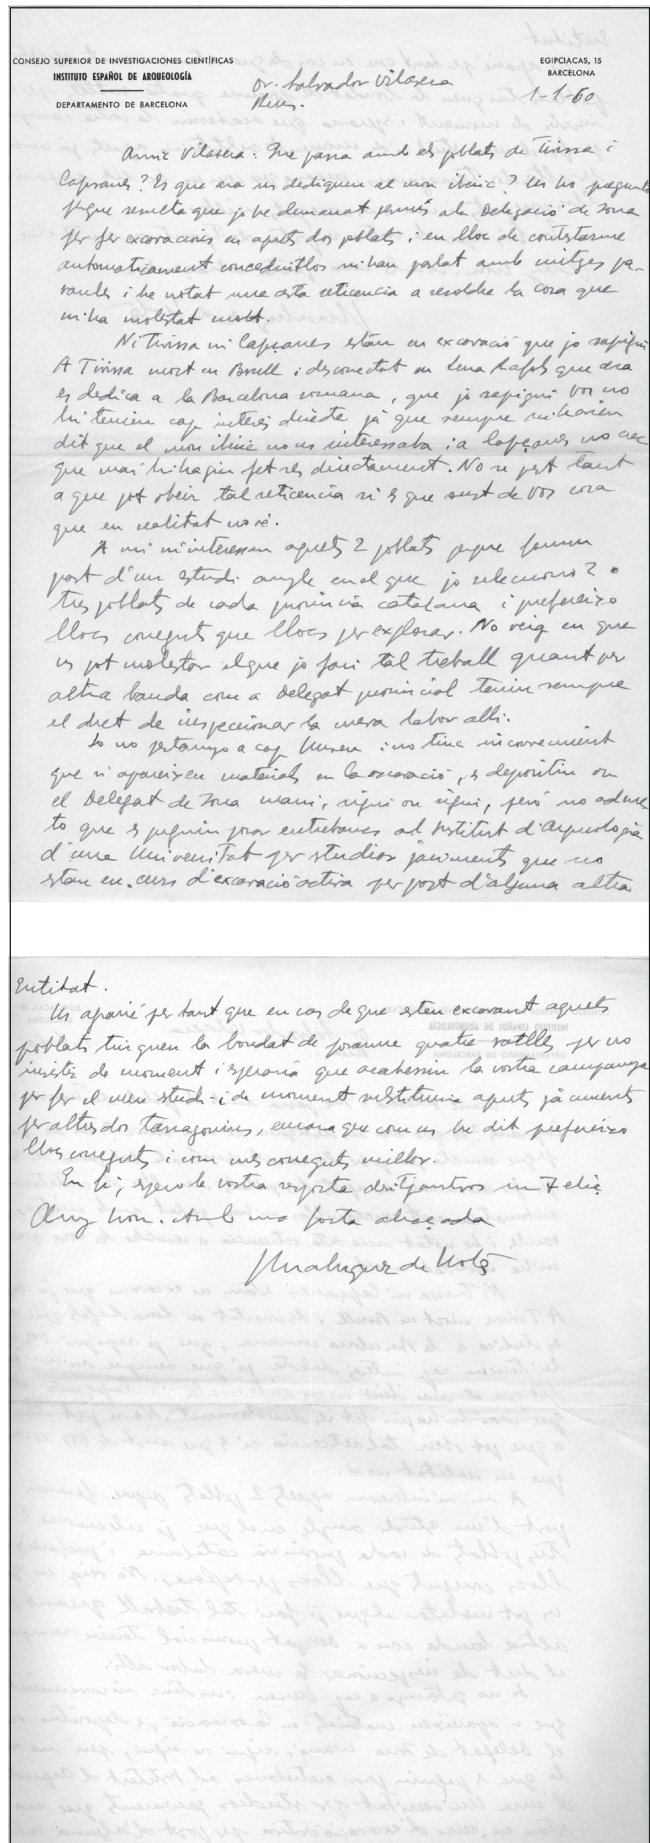 CONSEJO SUPERIOR DE INVESTIGACIONES CIENTÍFICAS
INSTITUTO ESPAÑOL DE ARQUEOLOGÍA
DEPARTAMENTO DE BARCELONA
EGIPCIACAS, 15
BARCELONA
Dr. Salvador Vilaseca
Reus.
1-1-60
Amic Vilaseca: Que passa amb els poblats de Tivissa i
Capsanes? Es que ara us dediqueu al mon ibèric? Us ho pregunto
perque resulta que jo he demanat permís a la Delegació de Zona
per fer excavacions en aquets dos poblats i en lloc de contestarme
automaticament concedintlos m'han parlat amb mitges pa-
raules i he notat una certa reticencia a resoldre la cosa que
m'ha molestat molt.
Ni Tivissa ni Capçanes estan en excavació que jo sapigui
A Tivissa mort en Brull i desconectat en Serra Rafols que ara
es dedica a la Barcelona romana, que jo sapigui vos no
hi tenieu cap interès directe, jà que sempre m'havieu
dit que el mon ibèric no us interessaba i a Capçanes no crec
que mai hi hagiu fet res directament. No se pas tant
a que pot obeir tal reticencia si es que surt de vos cosa
que en realitat no sé.
A mi m'interessen aquets 2 poblats perque formen
part d'un estudi ample en el que jo selecciono 2 o
tres poblats de cada provincia catalana i prefereixo
llocs coneguts que llocs per explorar. No veig en que
us pot molestar el que jo faci tal treball quant per
altra banda com a Delegat provincial teniu sempre
el dret de inspeccionar la meva labor alli.
Jo no pertanyo a cap Museu i no tinc inconvenient
que si apareixen materials en la excavació, es depositin on
el Delegat de Zona mani, sigui on sigui, però no admeto
que es puguin posar entrebancs al Institut d'Arqueologia
d'una Universitat per studiar jaciments que no
stan en curs d'excavació activa per part d'alguna altra
Entitat.
Us agrairé per tant que en cas de que esteu excavant aquets
poblats tinguen la bondat de posarme quatre ratlles per no
insistir de moment i esperaria que acabessin la vostra campanya
per fer el meu studi i de moment substituiria aquets jàciments
per altres dos tarragonins, encara que com us he dit prefereixo
llocs coneguts i com mes coneguts millor.
En fi, espero la vostra resposta desitjantvos un Feliç
Any Nou. Amb una forta abraçada
J Maluquer de Motes